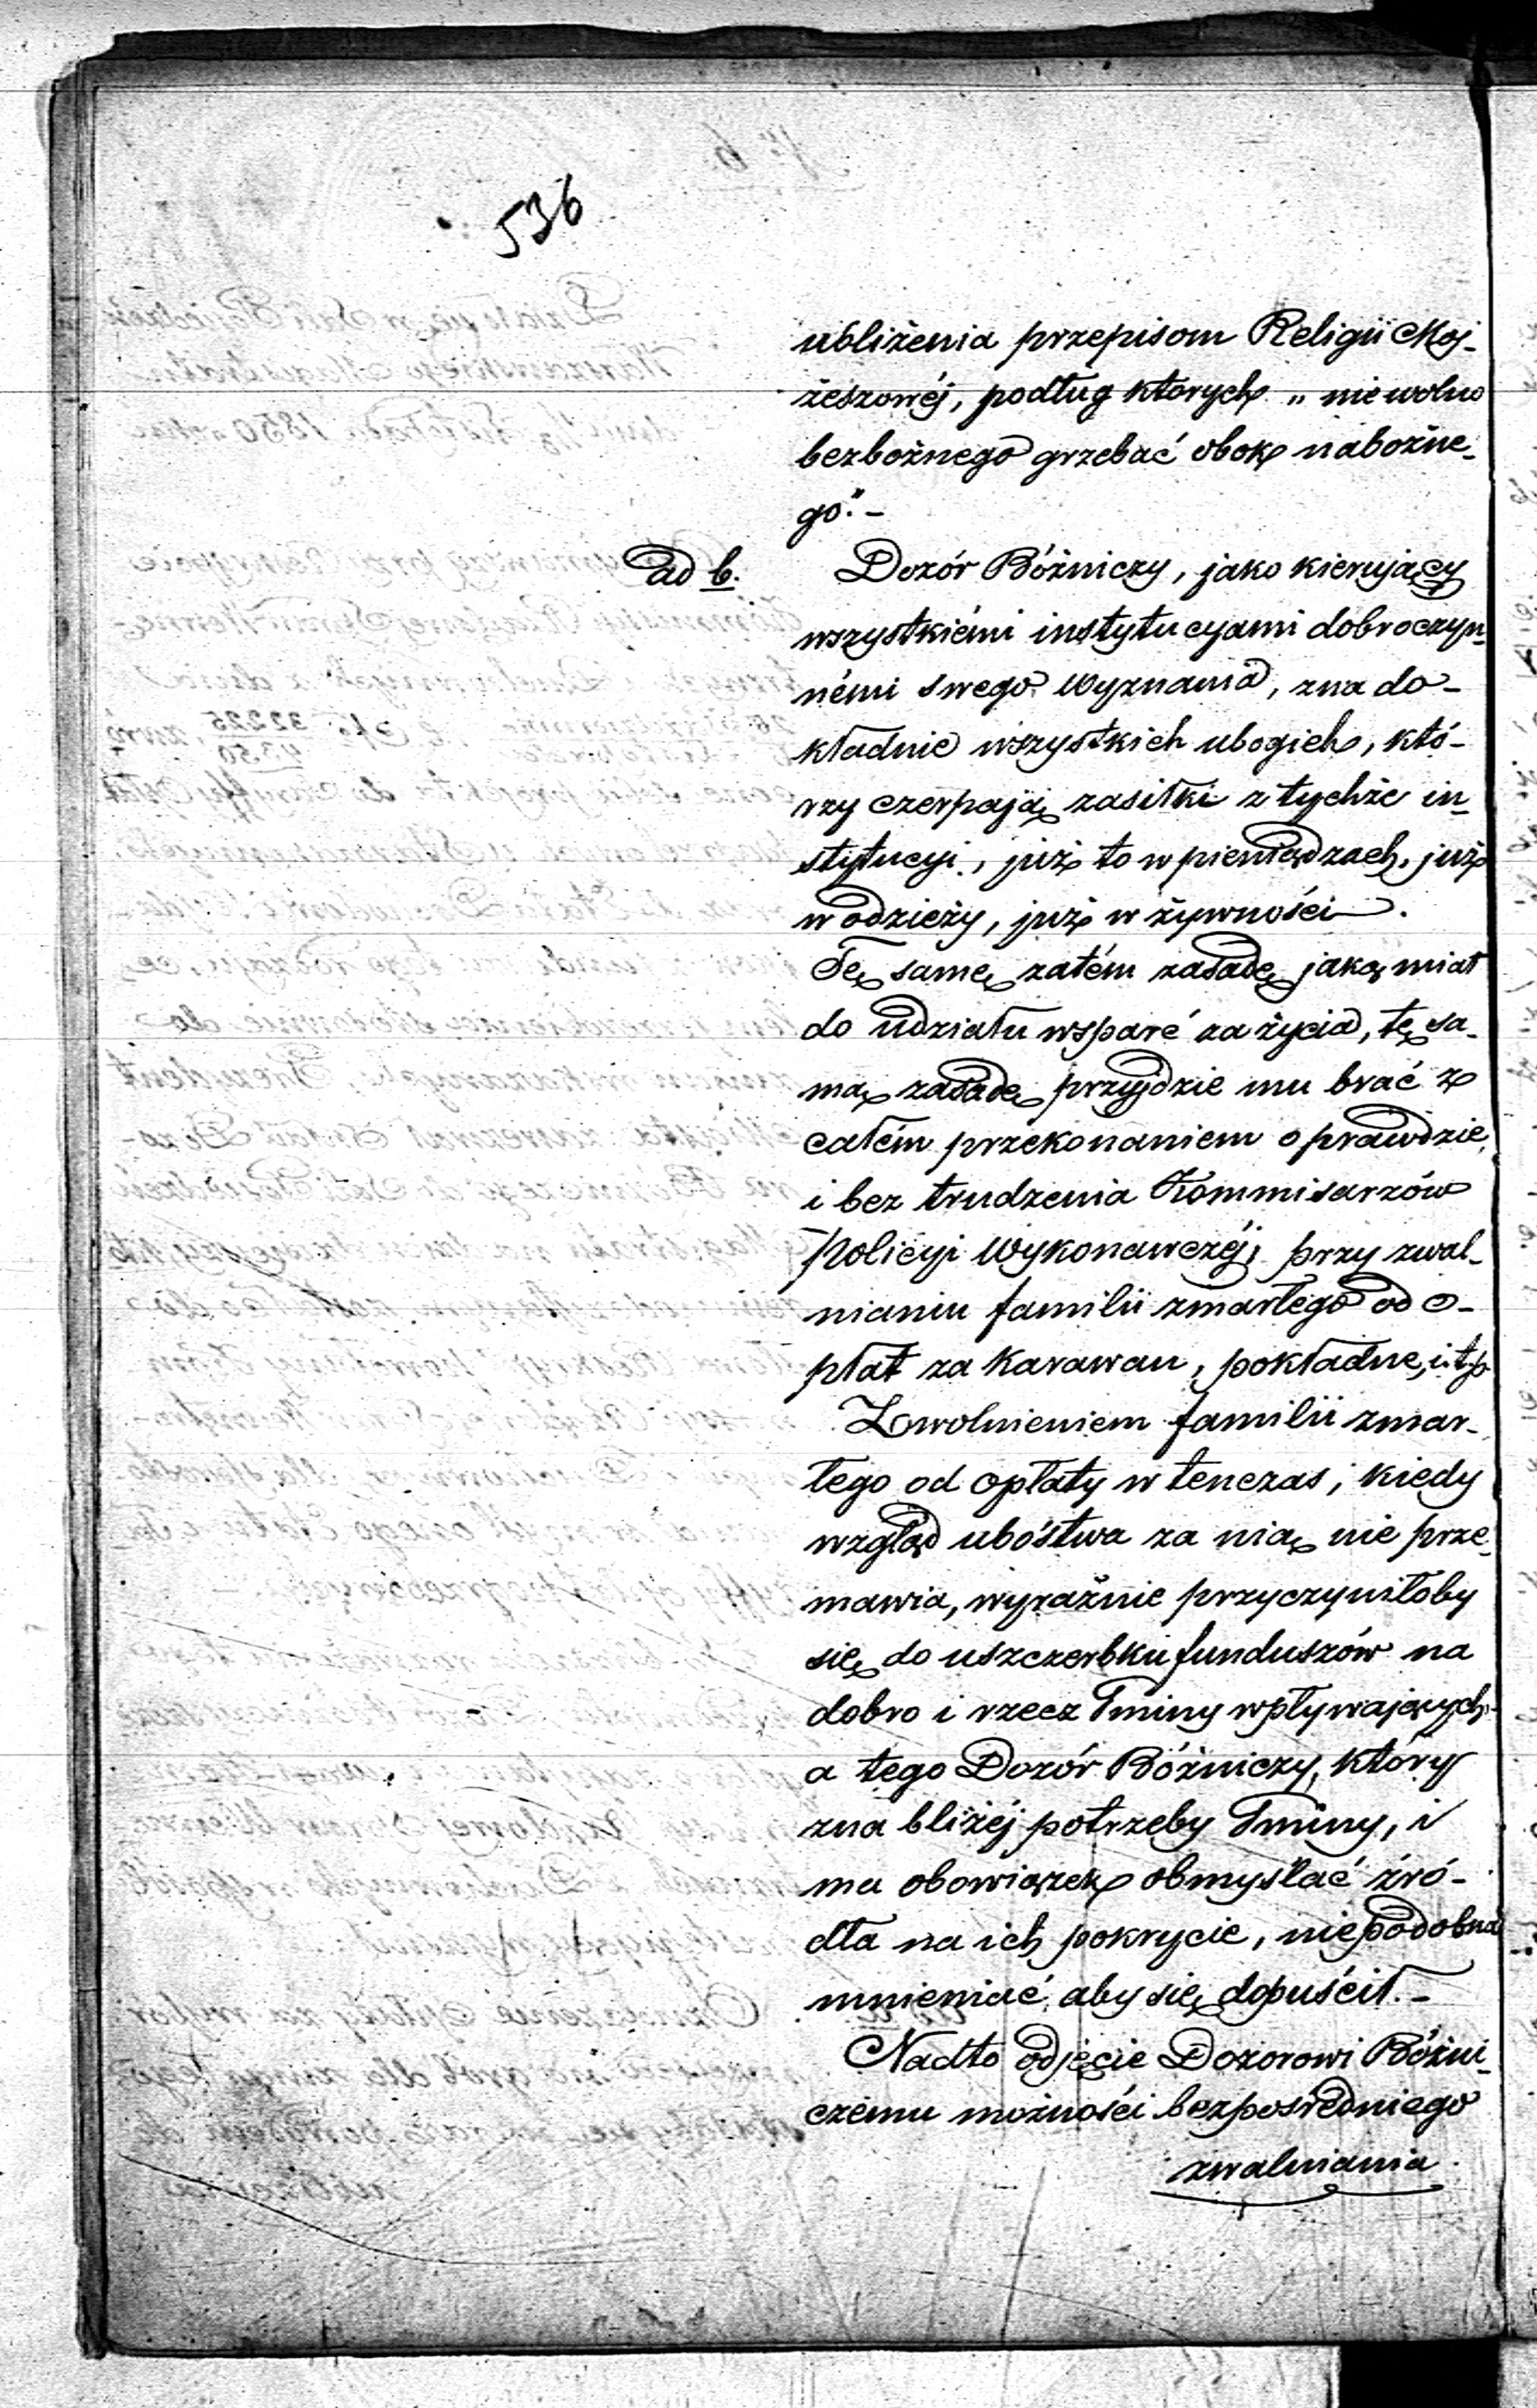 536
ubliżenia przepisom Religii Moj-
żeszowéj, podług których „nie wolno
bezbożnego grzebać obok nabożne-
go." -
ad b.
Dozór Bóżniczy, jako kierujący
wszystkiémi instytucyami dobroczyn-
némi swego Wyznania, zna do-
kładnie wszystkich ubogich, któ-
rzy czerpają zasiłki z tychże in-
stytucyi, już to w pieniądzach, już
w odzieży, już w żywności.
Tę samę zatém zasadę jaką miał
do udziału wsparć za życia, tę sa-
mą zasadę przyjdzie mu brać z
całém przekonaniem o prawdzie,
i bez trudzenia Kommisarzów
Policyi Wykonawczéj, przy zwal-
nianiu familii zmarłego od o-
płat za Karawan, pokładne, i t. p.
Zwolnieniem familii zmar-
łego od opłaty w tenczas, kiedy
wzgląd ubóstwa za nią nie prze-
mawia, wyraźnie przyczyniłoby
się do uszczerbku funduszów na
dobro i rzecz Gminy wpływających
a tego Dozór Bóżniczy, który
zna bliżéj potrzeby Gminy, i
ma obowiązek obmyślać źró-
dła na ich pokrycie, niepodobna
mniemać, aby się dopuścił. -
Nadto odjęcie Dozorowi Bóżni-
czemu możności bezpośredniego
zwalniania